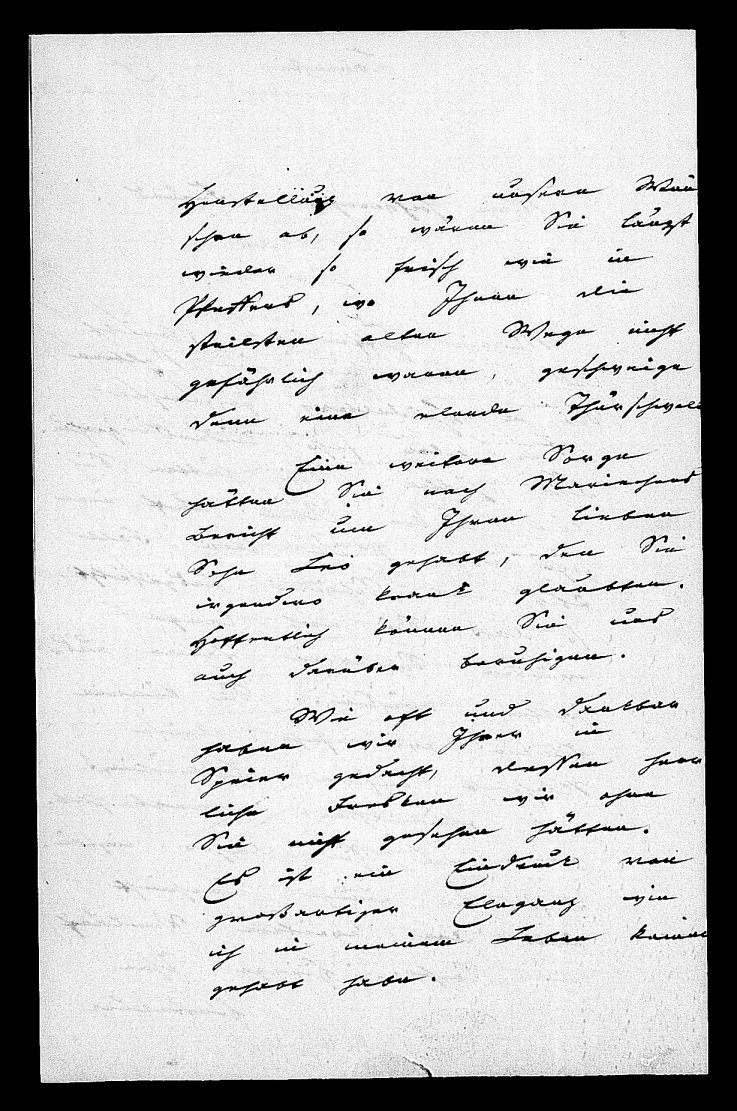 Herstellung von unsern Wün
schen ab, so wären Sie längst
wieder so frisch wie in
Pfeffers, wo Ihnen die
steilsten alten Wege nicht
gefährlich waren, geschweige
denn eine elende Thürschwell
Eine weitere Sorge
hätten Sie nach Mariechens
Bericht um Ihren lieben
Sohn Leo gehabt, den Sie
irgendwo krank glaubten.
Hoffentlich können Sie uns
auch darüber beruhigen.
Wie oft und dankbar
haben wir Ihrer in
Speier gedacht, dessen herr
liche Fresken wir ohne
Sie nicht gesehen hätten.
Es ist ein Eindruck von
großartiger Eleganz wie
ich in meinem Leben keinen
gehabt habe.